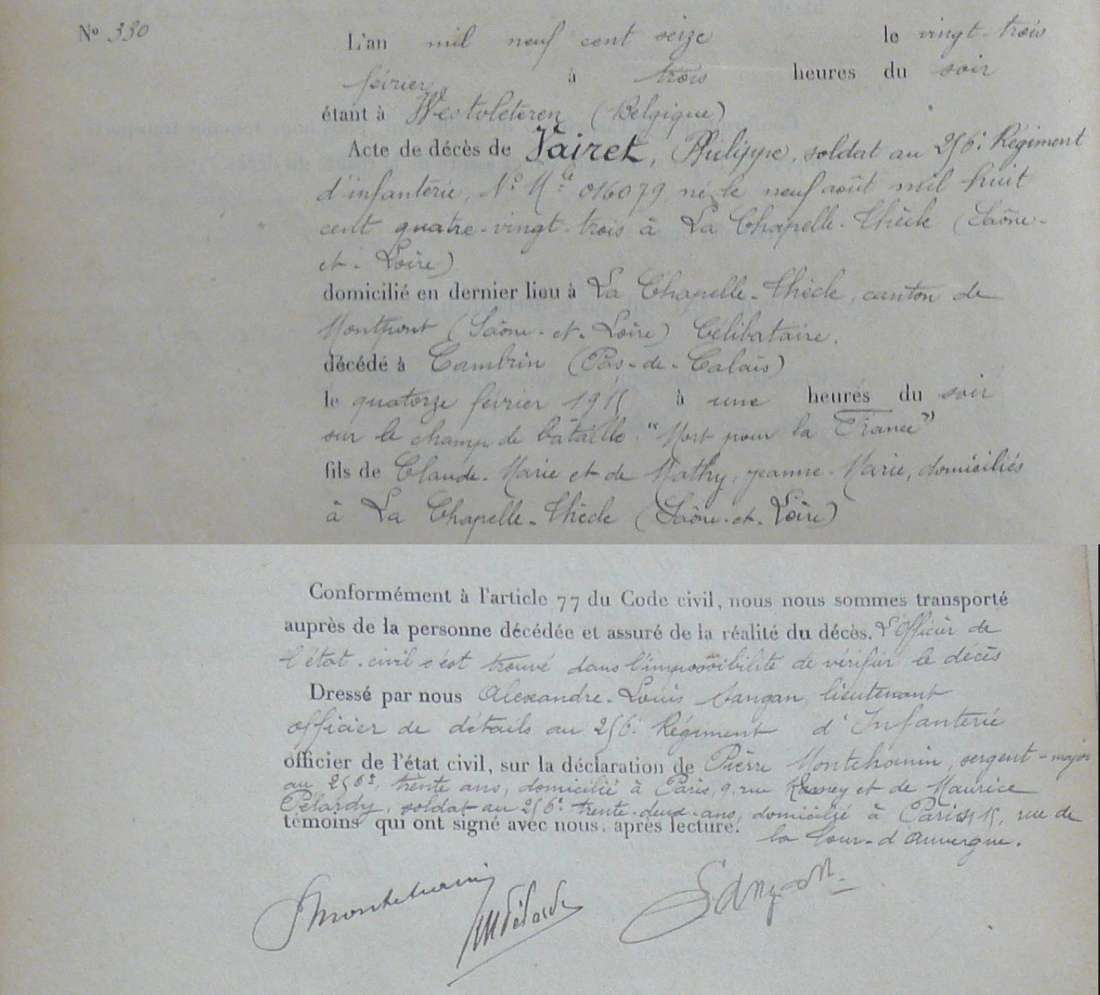 N° 330
L'an mil neuf cent seize le vingt-trois
février, à trois heures du soir
étant à Westvleteren (Belgique)
Acte de décès de Vairet, Philippe, soldat au 256e Régiment
d'infanterie, N° Mle 016079, né le neuf août mil huit
cent quatre-vingt-trois à La Chapelle-Thècle (Saône-
et-Loire)
domicilié en dernier lieu à La Chapelle-Thècle, canton de
Montpont (Saône-et-Loire) Célibataire.
décédé à Cambrin (Pas-de-Calais)
le quatorze février 1915 à une heures du soir
sur le champ de bataille. "Mort pour la France"
fils de Claude-Marie et de Mathy, Jeanne-Marie, domiciliés
à La Chapelle-Thècle (Saône-et-Loire)
Conformément à l'article 77 du Code civil, nous nous sommes transporté
auprès de la personne décédée et assuré de la réalité du décès. L'Officier de
l'état-civil s'est trouvé dans l'impossibilité de vérifier le décès
Dressé par nous Alexandre-Louis Sangan, lieutenant
officier de détails au 256e Régiment d'Infanterie
officier de l'état civil, sur la déclaration de Pierre Montchouin, sergent-major
au 256e, trente ans, domicilié à Paris, 9, rue et de Maurice
Pelardy, soldat au 256e trente-deux-ans, domicilié à Paris, 15, rue de
témoins qui ont signé avec nous, après lecture.
la Tour-d'Auvergne.